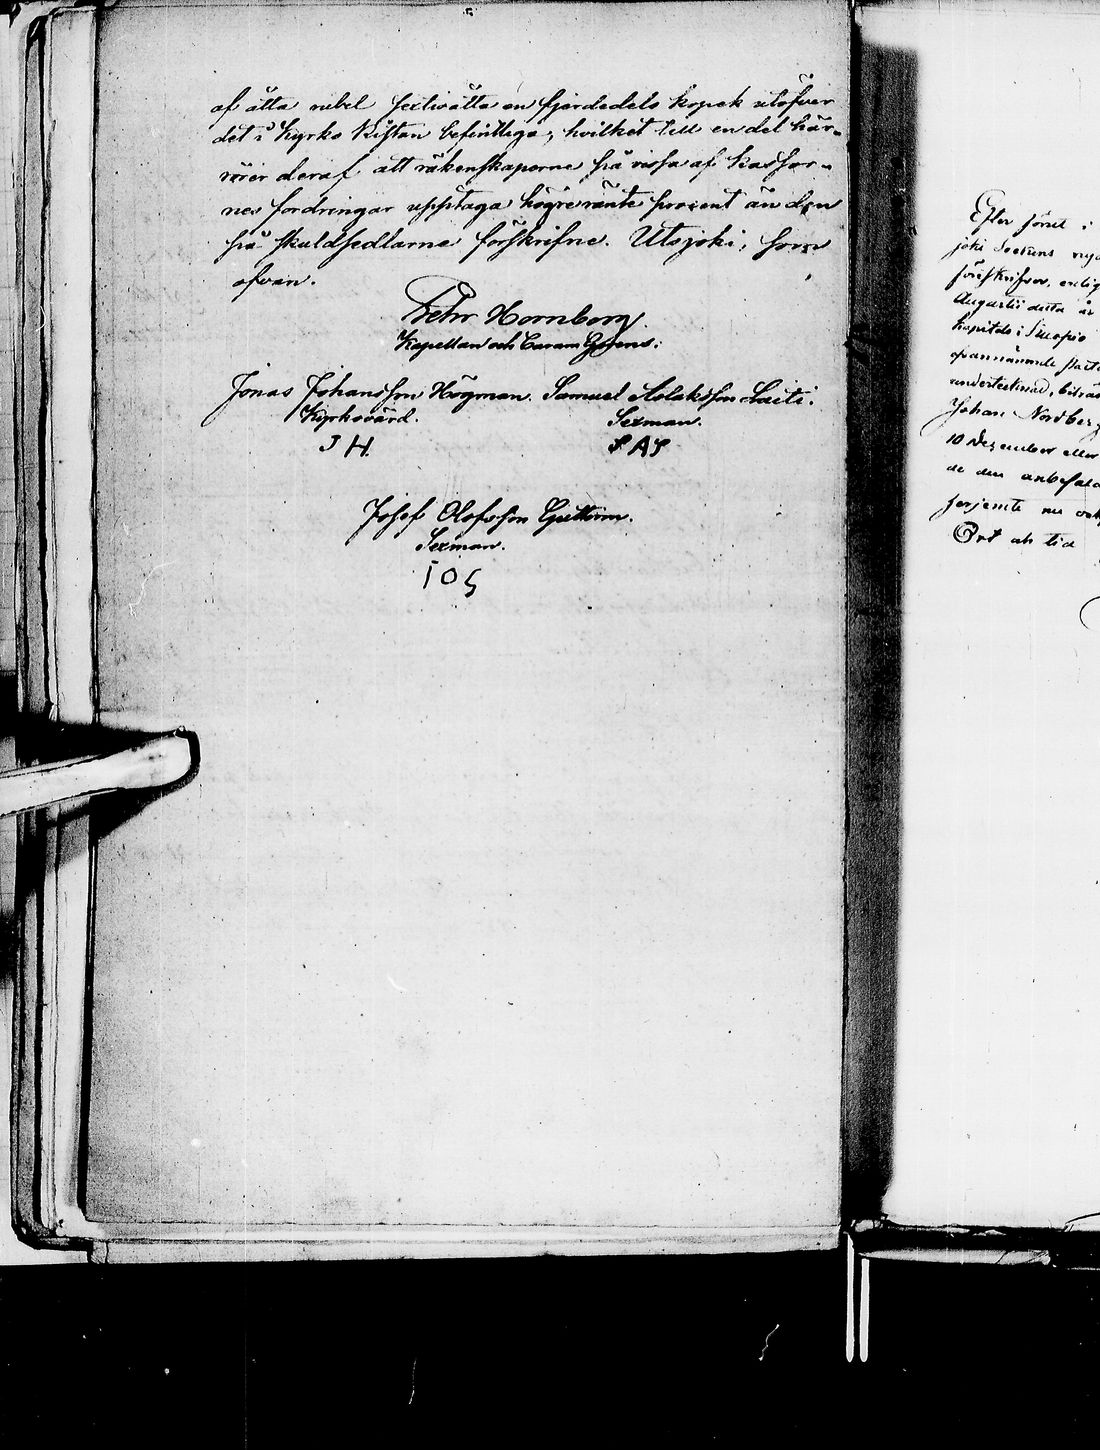 af åtta rubel sextioåtta en fjerdedels kopek utöfver
det i Kyrko Kistan befintliga; hvilket till en del här-
rörer deraf att räkenskaperne på vissa af Kassor-
nes fordringar upptaga högre ränte procent än den
på skuldsedlarne förskrifne. Utsjoki, som
ofvan.
Petr Hornborg.
Kapellan och Curam Gerens.
Jonas Johansson Högman. Samuel Aslaksson Laiti.
Kyrkovärd. Sexman.
J H. S A S
Josef Olofsson Guttorm.
Sexman.
I O S
Efter förut i
joki Sockens
föreskrifver, enlig
Augusti detta år
Kapitels i Kuopio
ofvannämnde
undertecknad, biträd
Johan Nordberg
10 December eller
de den anbefald
ferjemte nu
Ort och tid